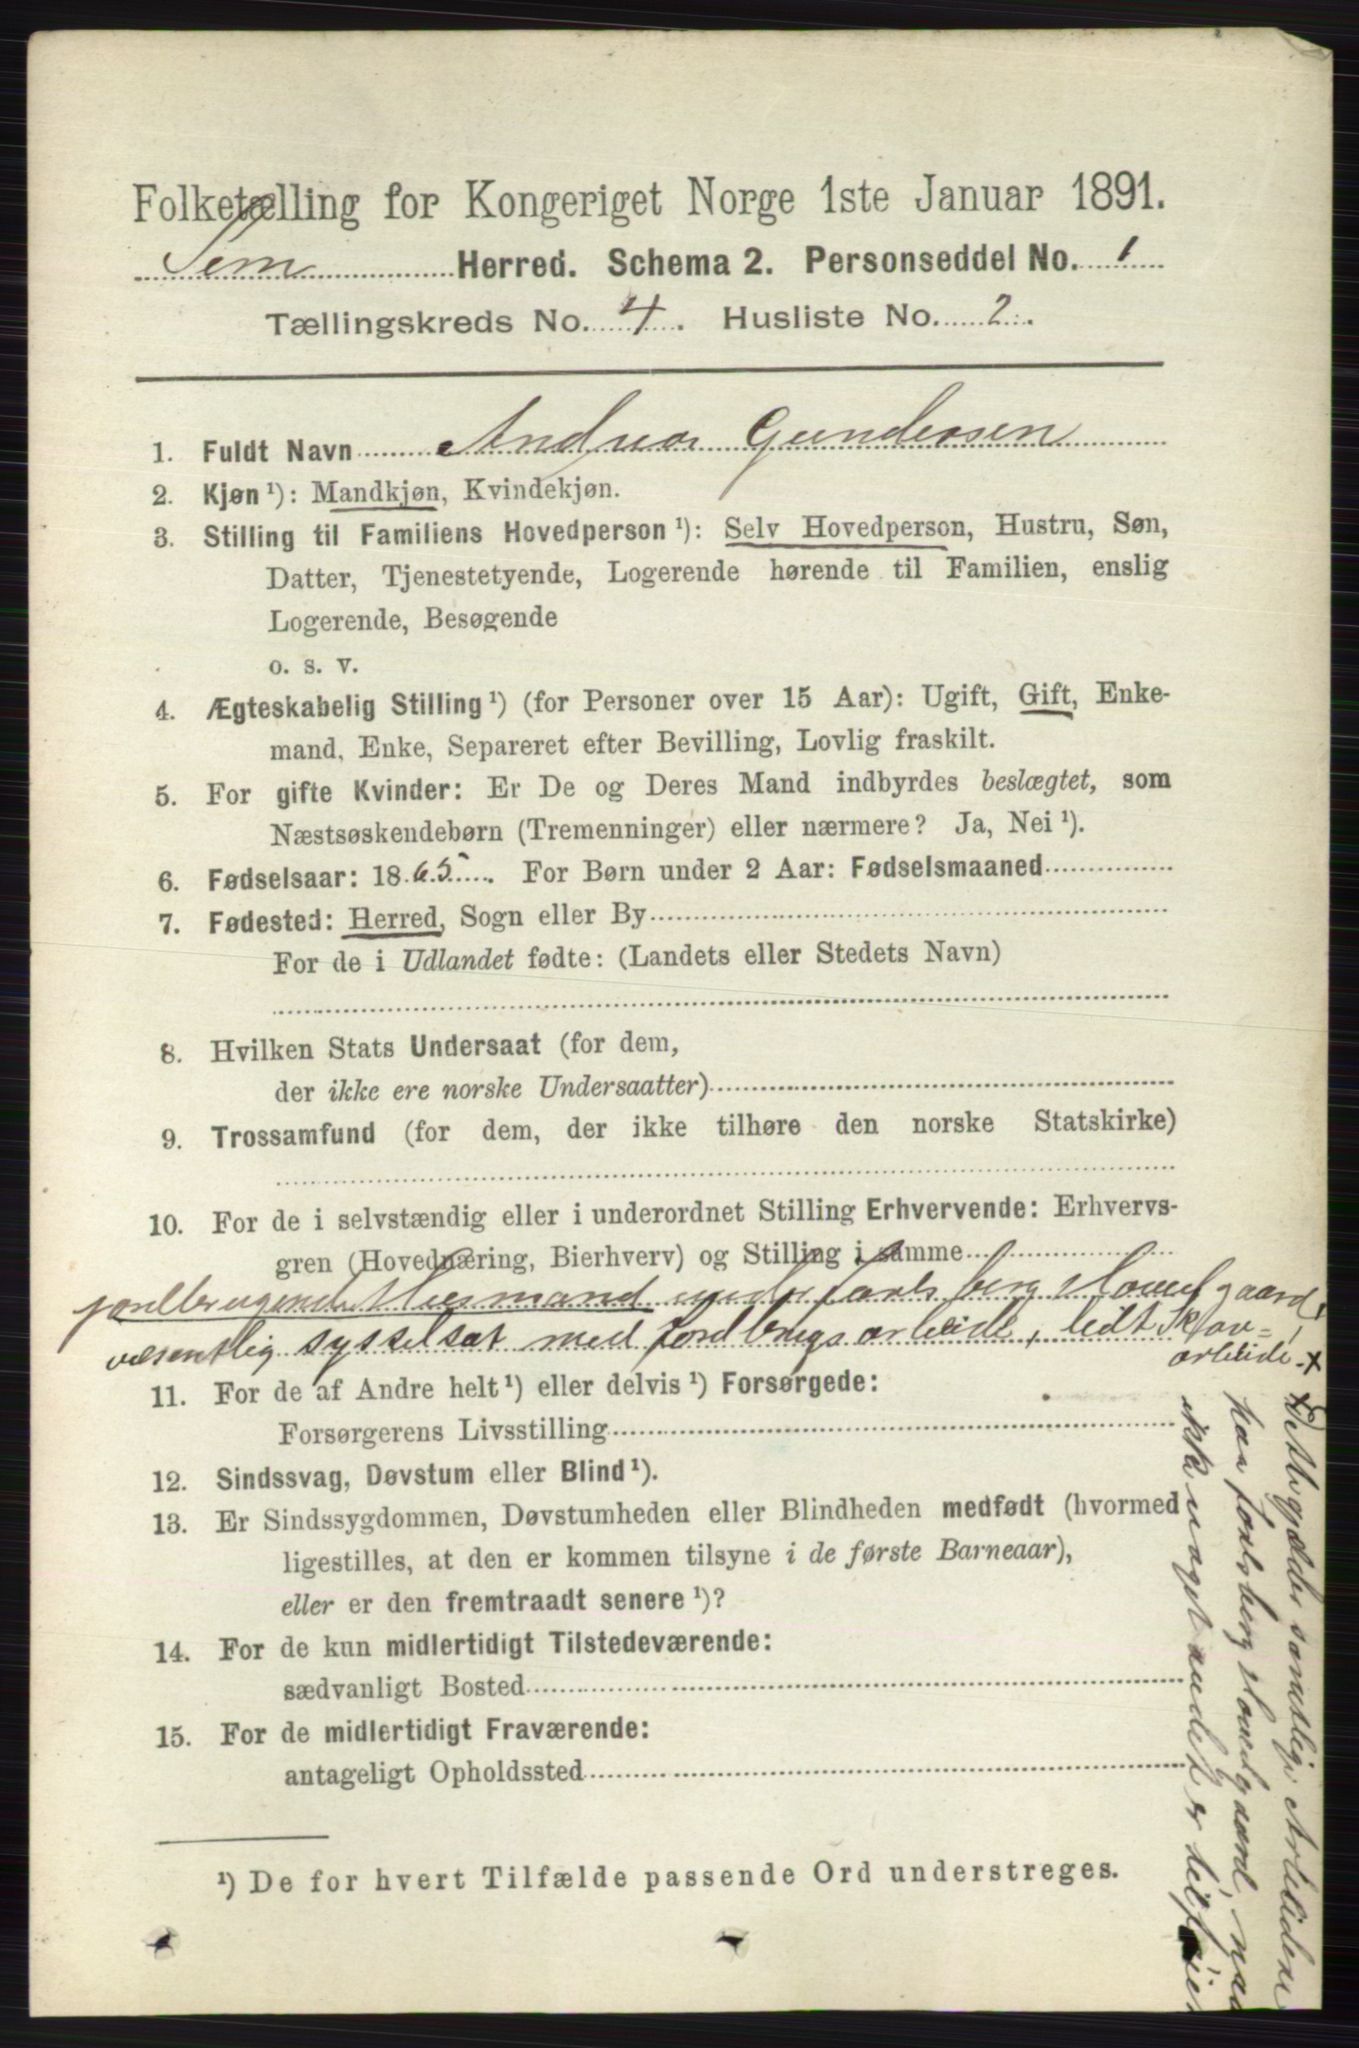 Folketælling for Kongeriget Norge 1ste Januar 1891.
Sem Herred. Schema 2. Personseddel No. 1
Tællingskreds No. 4. Husliste No. 2.
1. Fuldt Navn Andreas Gundersen
2. Kjøn ¹): Mandkjøn, Kvindekjøn.
3. Stilling til Familiens Hovedperson ¹): Selv Hovedperson, Hustru, Søn,
Datter, Tjenestetyende, Logerende hørende til Familien, enslig
Logerende, Besøgende
o. s. v.
4. Ægteskabelig Stilling ¹) (for Personer over 15 Aar): Ugift, Gift, Enke-
mand, Enke, Separeret efter Bevilling, Lovlig fraskilt.
5. For gifte Kvinder: Er De og Deres Mand indbyrdes beslægtet, som
Næstsøskendebørn (Tremenninger) eller nærmere? Ja, Nei ¹).
6. Fødselsaar: 1865. For Børn under 2 Aar: Fødselsmaaned
7. Fødested: Herred, Sogn eller By
For de i Udlandet fødte: (Landets eller Stedets Navn)
8. Hvilken Stats Undersaat (for dem,
der ikke ere norske Undersaatter)
9. Trossamfund (for dem, der ikke tilhøre den norske Statskirke)
10. For de i selvstændig eller i underordnet Stilling Erhvervende: Erhvervs-
gren (Hovednæring, Bierhverv) og Stilling i samme
jordbrugende Huusmand under Jarlsberg Hovedgaard,
væsentlig sysselsat med Jordbrugsarbeide, lidt Skov-
arbeide. x
11. For de af Andre helt ¹) eller delvis ¹) Forsørgede:
Forsørgerens Livsstilling
12. Sindssvag, Døvstum eller Blind ¹).
13. Er Sindssygdommen, Døvstumheden eller Blindheden medfødt (hvormed
ligestilles, at den er kommen tilsyne i de første Barneaar),
eller er den fremtraadt senere ¹)?
14. For de kun midlertidigt Tilstedeværende:
sædvanligt Bosted
15. For de midlertidigt Fraværende:
antageligt Opholdssted
¹) De for hvert Tilfælde passende Ord understreges.
x Dette gjælder samtlige Arbeidere
paa Jarlsberg Hovedgaard, naar
ikke noget andet er tilføiet